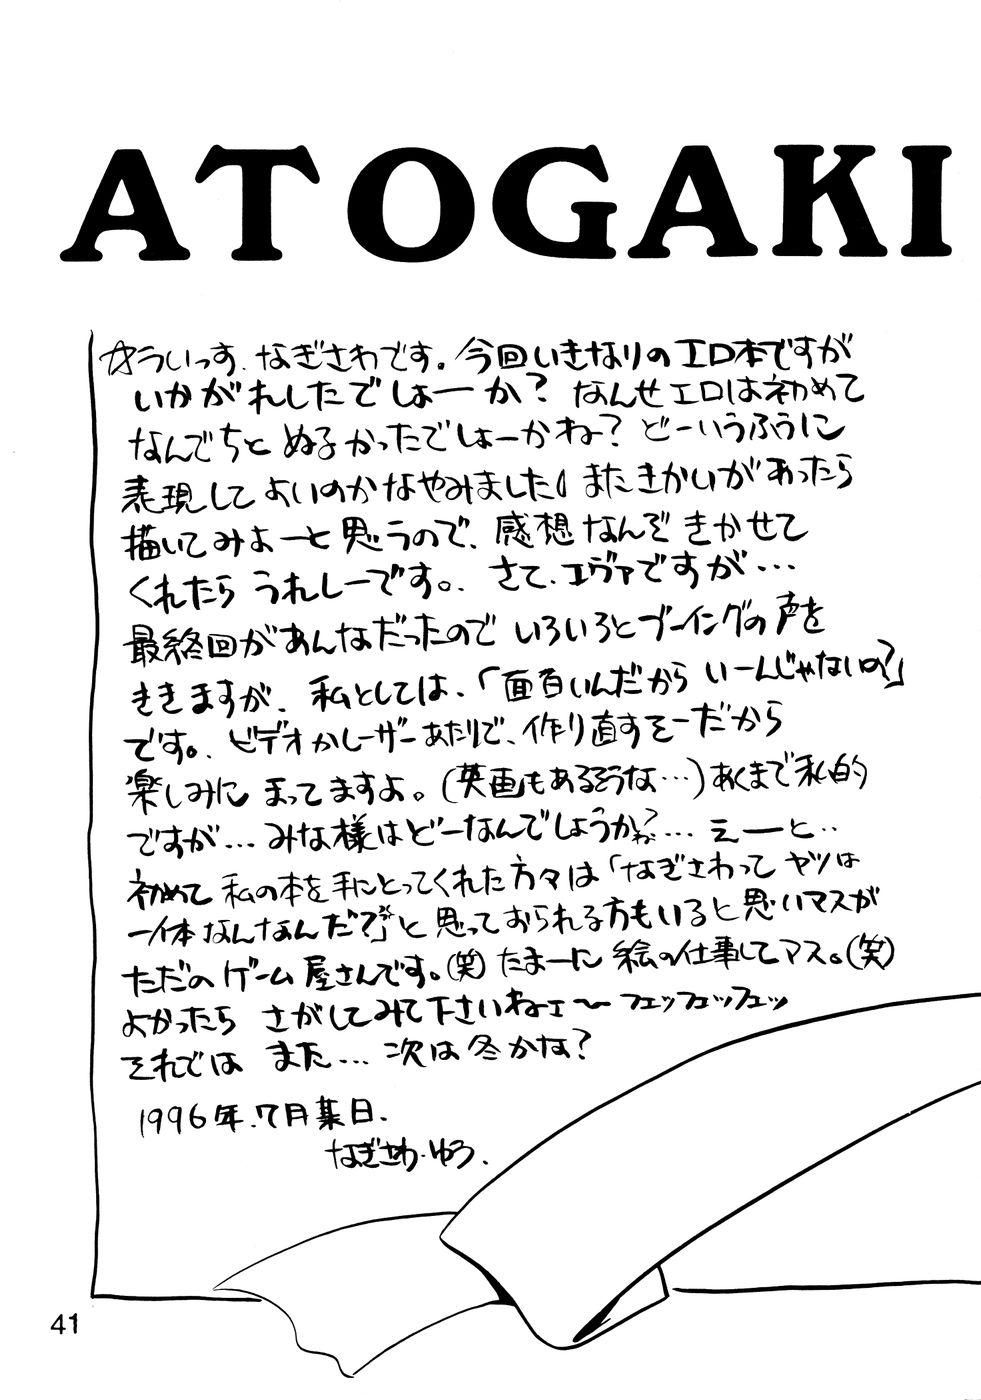 ATOGAKI
ういっす、なぎさわです。今回いきなりのエロ本ですが
いかがれしたでしょーか？なんせエロは初めて
なんでちとぬるかったでしょーかね？どーいうふうに
表現してよいのかなやみました。またきかいがあったら
描いてみよーと思うので、感想なんぞきかせて
くれたらうれしーです。さて、エヴァですが…
最終回があんなだったのでいろいろとブーイングの声を
ききますが、私としては、「面白いんだからいーんじゃないの？」
です。ビデオかレーザーあたりで、作り直すそーだから
楽しみにまってますよ。(英画もあるそうな…)あくまで私的
ですが…みな様はどーなんでしょうかね？…えーと..
初めて私の本を手にとってくれた方々は「なぎさわってヤツは
一体なんなんだ？」と思っておられる方もいると思いマスが
ただのゲーム屋さんです。(笑)たまーに絵の仕事してマス。(笑)
よかったらさがしてみて下さいねェ〜フェッフェッフェッ
それではまた…次は冬かな？
1996年.7月某日.
なぎさわ・ゆう.
41